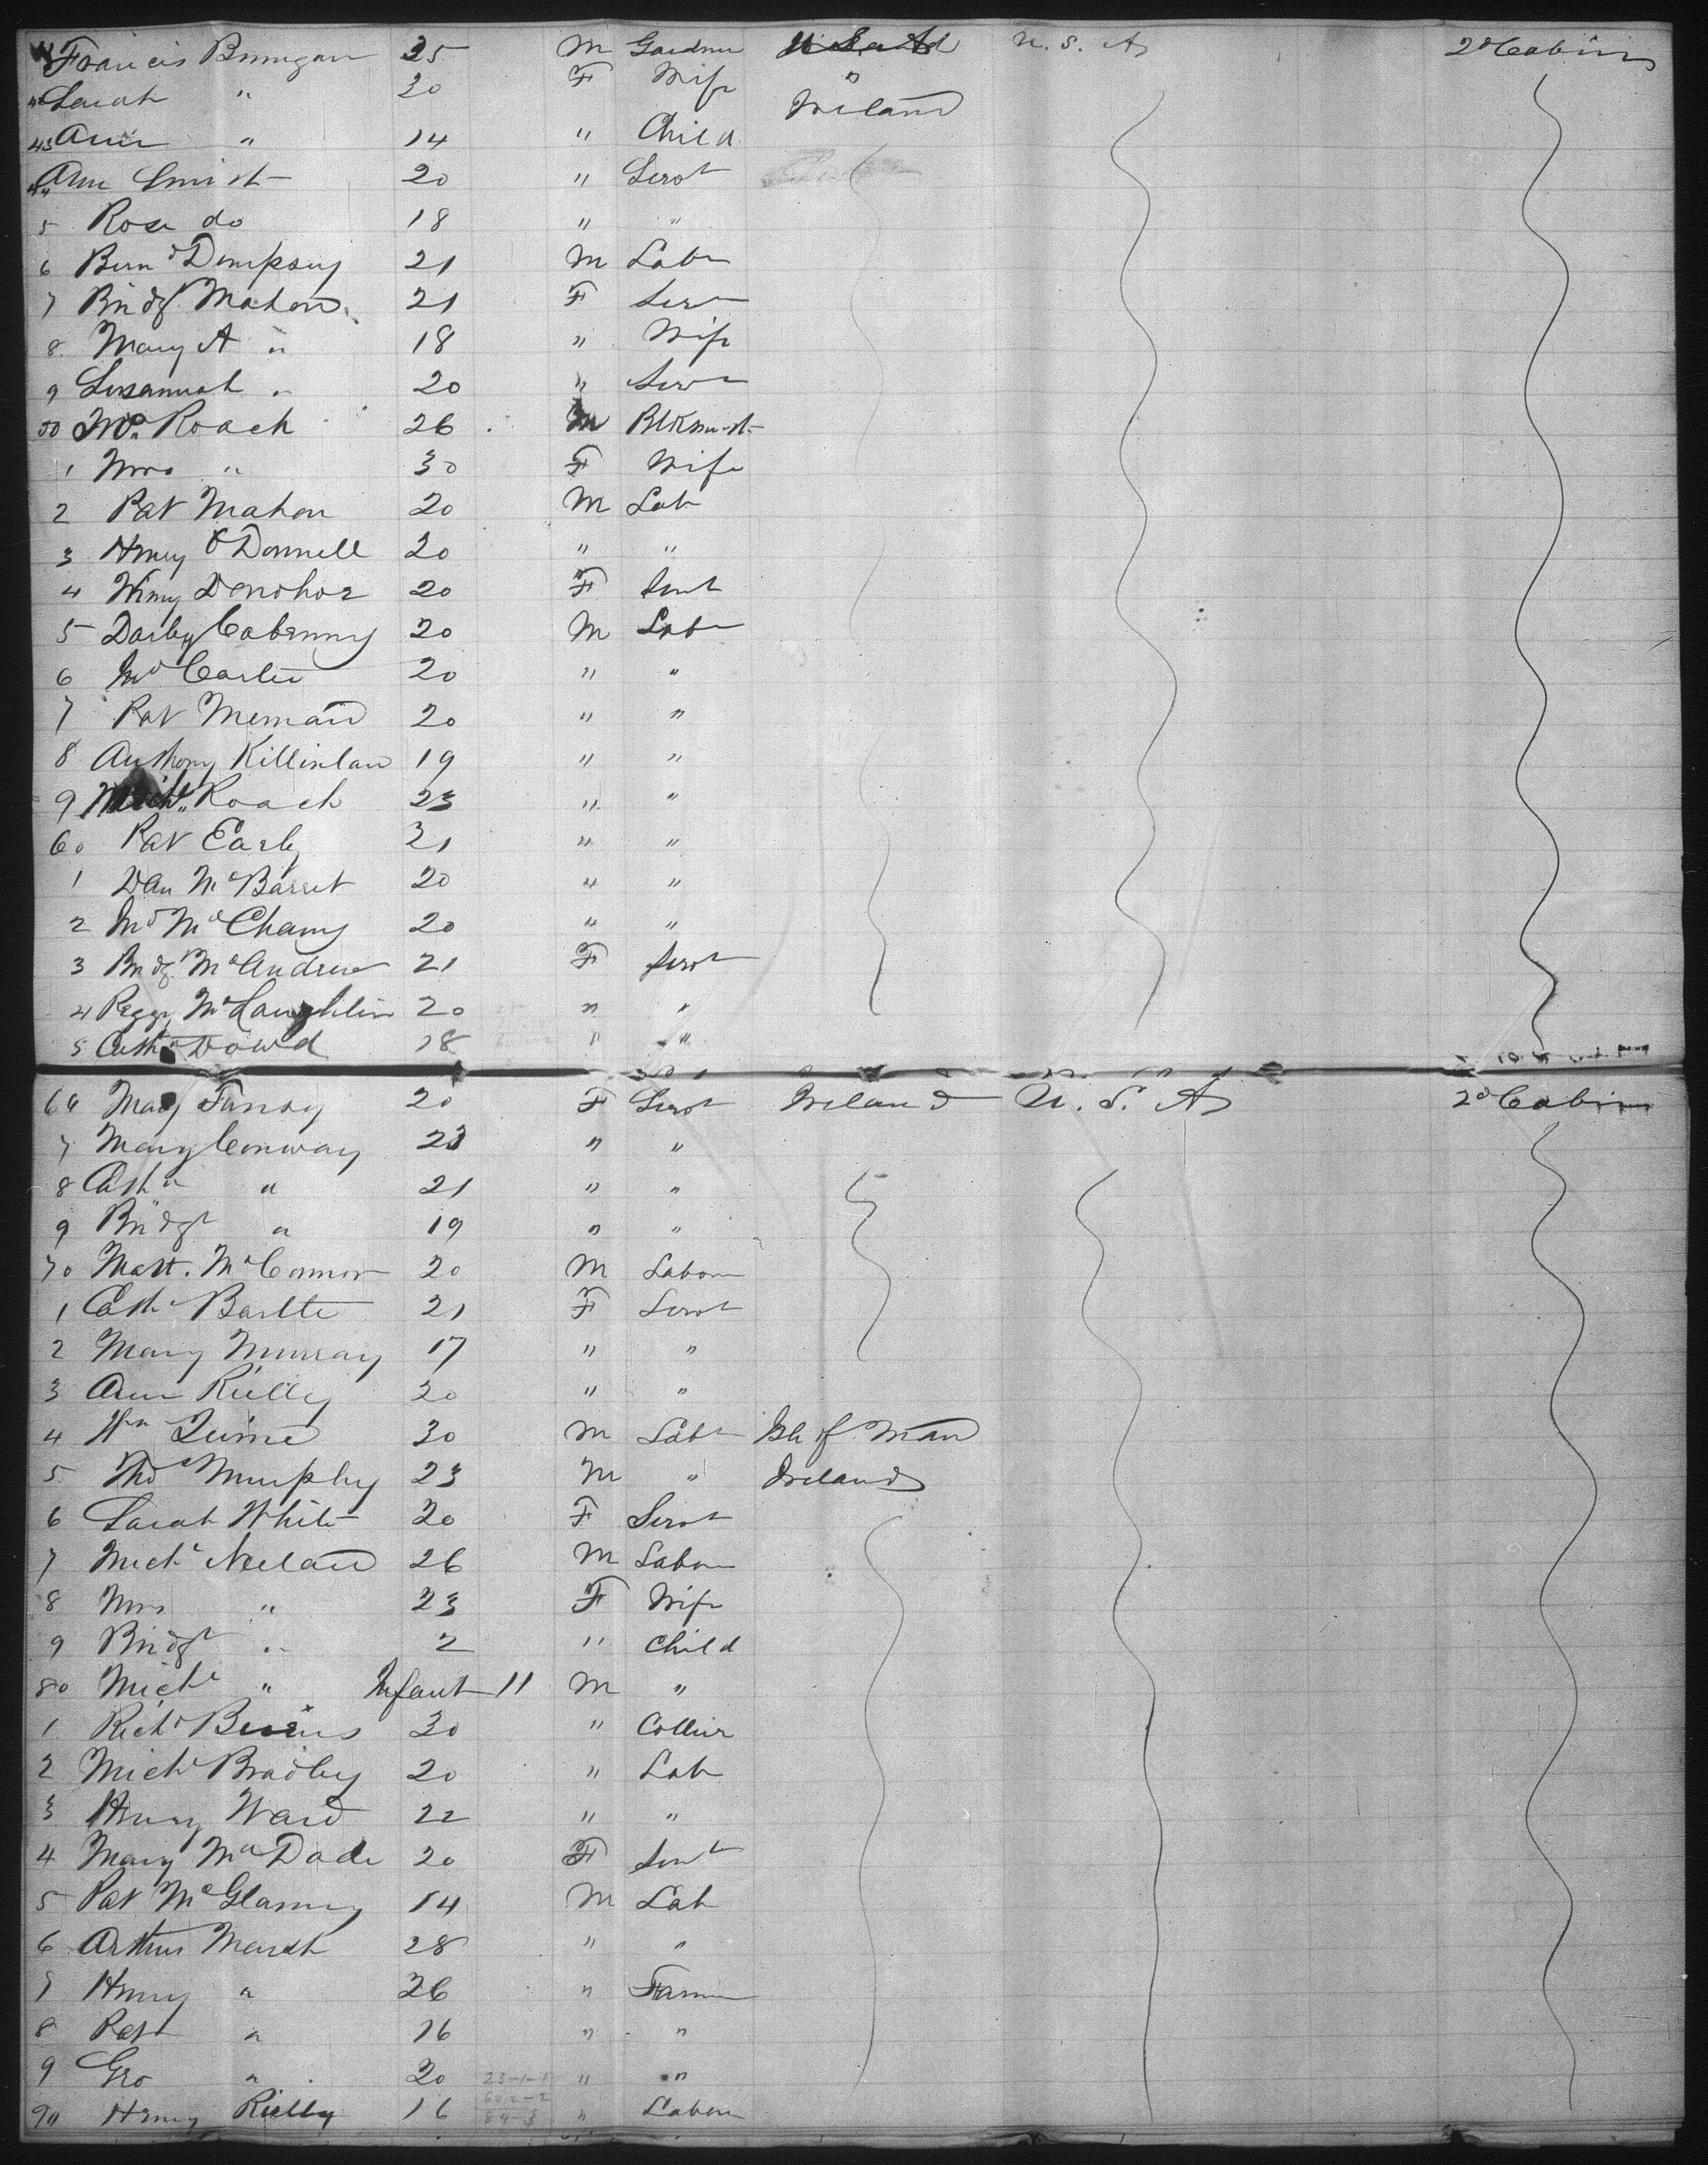 Francis Brunigan 25 M Gardner U. S. A 2d Cabin
Sarah " 20 F Wife "
Ireland
43 Ann " 14 " Child
44 Ann Smith 20 " Servt
5 Rose do 18 " "
6 Bernd Dempsey 21 M Labr
7 Bridgt Mahon 21 F Servt
8 Mary A " 18 " Wife
9 Susannah " 20 " Servt
50 Roach 26 M Blksmith
1 Mrs " 30 F Wife
2 Pat Mahon 20 M Lab
3 Henry O'Donnell 20 " "
4 Winny Donohoe 20 F Servt
5 Darby 20 M Labr
6 20 " "
7 Pat 20 " "
8 Anthony Killinlan 19 " "
9 Michl Roach 23 " "
60 Pat Early 21 " "
1 Dan Mc Barret 20 " "
2 20 " "
3 Bridgt McAndrew 21 F Servt
4 Peggy McLaughlin 20 " "
5 Cath Dowd 18 " "
66 Mary 20 F Servt Ireland U. S. A 2d Cabin
7 Mary Conway 23 " "
8 Cath " 21 " "
9 Bridgt " 19 " "
70 Matt. McConnor 20 M Labour
1 Cath Bartte 21 F Servt
2 Mary Murray 17 " "
3 Ann Rielly 20 " "
4 Wm Quine 30 M Labr Isle of Man
5 Thos Murphy 23 M " Ireland
6 Sarah White 20 F Servt
7 Michl Neelan 26 M Labour
8 Mrs " 23 F Wife
9 Bridgt " 2 " Child
80 Michl " Infant 11 M "
1 Richd Burns 30 " Collier
2 Michl Bradley 20 " Lab
3 Henry Ward 22 " "
4 Mary McDade 20 F Servt
5 Pat McGlanny 14 M Lab
6 Arthur Marsh 28 " "
7 Henry " 26 " Farmer
8 Patr " 16 " "
9 Geo " 20 " "
90 Henry Rielly 16 " Labour